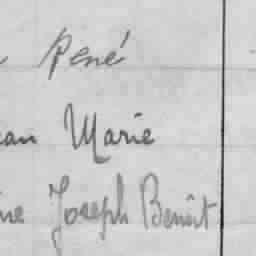 René
ean Marie
ine Joseph Benoît